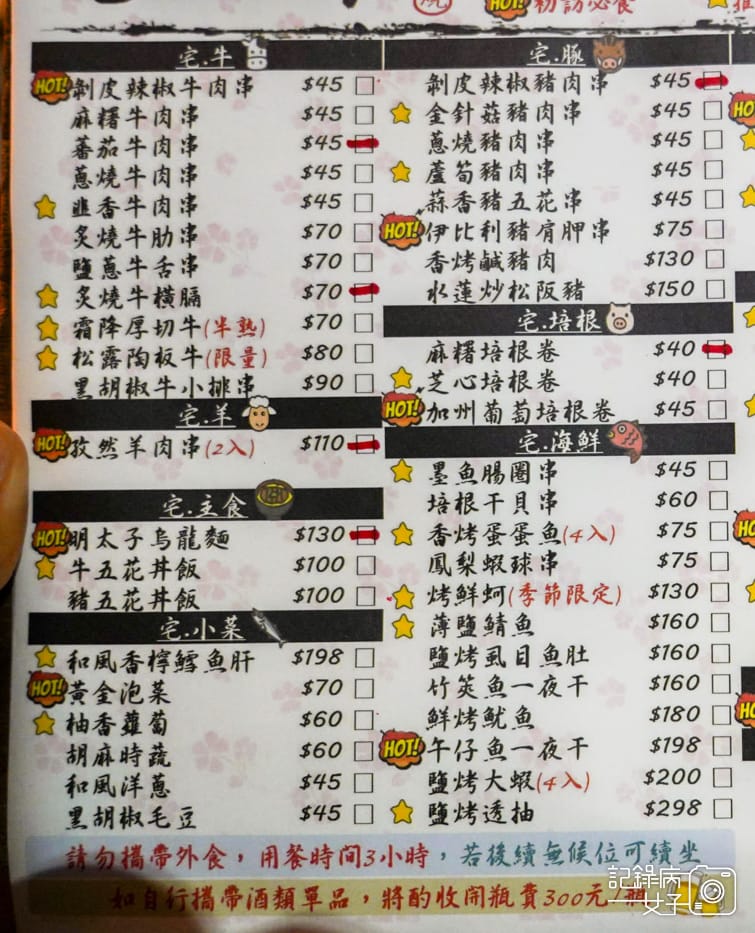 初訪必食
宅.牛
HOT! 剝皮辣椒牛肉串 $45
麻糬牛肉串 $45
蕃茄牛肉串 $45
蔥燒牛肉串 $45
韭香牛肉串 $45
炙燒牛肋串 $70
鹽蔥牛舌串 $70
炙燒牛橫膈 $70
霜降厚切牛(半熟) $70
松露陶板牛(限量) $80
黑胡椒牛小排串 $90
宅.羊
HOT! 孜然羊肉串(2入) $110
宅.主食
HOT! 明太子烏龍麵 $130
牛五花丼飯 $100
豬五花丼飯 $100
宅.小菜
和風香檸鱈魚肝 $198
HOT! 黃金泡菜 $70
柚香蘿蔔 $60
胡麻時蔬 $60
和風洋蔥 $45
黑胡椒毛豆 $45
宅.豚
剝皮辣椒豬肉串 $45
金針菇豬肉串 $45
蔥燒豬肉串 $45
蘆筍豬肉串 $45
蒜香豬五花串 $45
HOT! 伊比利豬肩胛串 $75
香烤鹹豬肉 $130
水蓮炒松阪豬 $150
宅.培根
麻糬培根卷 $40
芝心培根卷 $40
HOT! 加州葡萄培根卷 $45
宅.海鮮
墨魚腸圈串 $45
培根干貝串 $60
香烤蛋蛋魚(4入) $75
鳳梨蝦球串 $75
烤鮮蚵(季節限定) $130
薄鹽鯖魚 $160
鹽烤虱目魚肚 $160
竹筴魚一夜干 $160
鮮烤魷魚 $180
HOT! 午仔魚一夜干 $198
鹽烤大蝦(4入) $200
鹽烤透抽 $298
請勿攜帶外食，用餐時間3小時，若後續無候位可續坐
如自行攜帶酒類單品，將酌收開瓶費300元/瓶
記錄病
女子